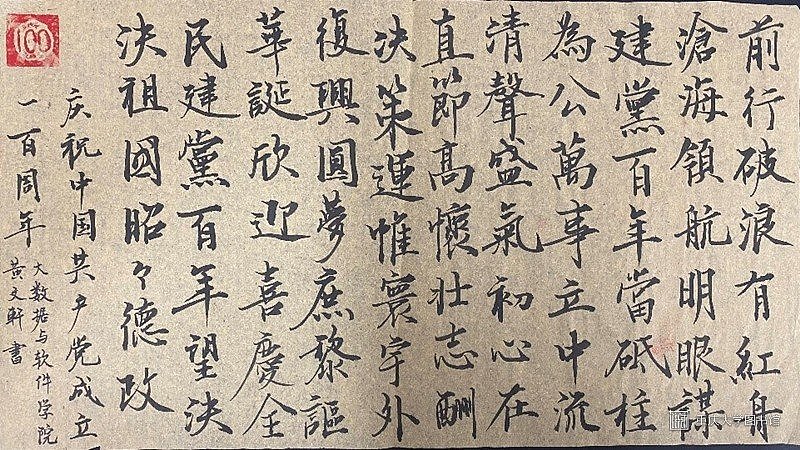 前行破浪有紅舟
滄海領航明眼謀
建黨百年當砥柱
為公萬事立中流
清聲盛氣初心在
直節高懷壯志酬
決策運惟寰宇外
復興圓夢庶黎謳
華誕欣迎喜慶全
民建黨百年望泱
泱祖國昭々德政
庆祝中国共产党成立
一百周年
大数据与软件学院
黄文軒書
100
重庆大学图书馆